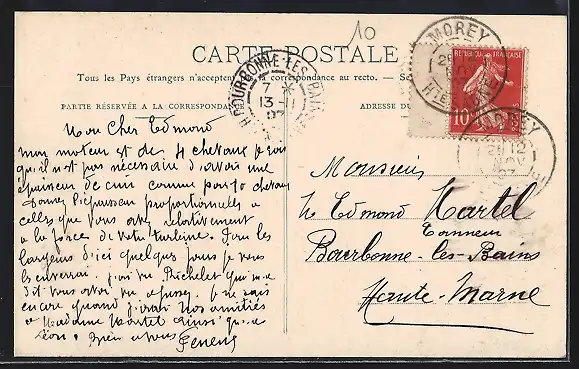 10
CARTE POSTALE
Tous les Pays étrangers n'acceptent la correspondance au recto. — Se
PARTIE RÉSERVÉE A LA CORRESPONDANCE
ADRESSE DU
MOREY
Hte SAONE
BOURBONNE-LES-BAINS
7
13-11
07
REPUBLIQUE FRANÇAISE
10
POSTES
MOREY
12
NOV
07
Mon Cher Edmond
mon moteur est de 4 chevaux je vois
qu'il n'est pas nécessaire d'avoir une
épaisseur de cuir comme pour 10 chevaux
Donnez l'épaisseur proportionnelle a
celles que vous avez relativement
a la force de votre turbine. Pour les
largeurs d'ici quelques jours je vous
les enverrai. j'ai vu Richelet qui m'a
dit vous avoir vu je ne sais
encore quand j'irai Nos amitiés
a Madame Martel ainsi qu'a
Léon. Bien a vous
Monsieur
Edmond Martel
Tanneur
Bourbonne-les-Bains
Haute-Marne